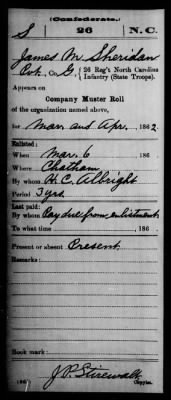 (Confederate.)
S 26 N.C.
James M. Sheridan
Pvt., Co. G, 26 Reg't North Carolina
Infantry (State Troops).
Appears on
Company Muster Roll
of the organization named above,
for Mar and Apr, 1862.
Enlisted:
When Mar. 6, 186
Where Chatham
By whom H. C. Albright
Period 3 yrs
Last paid:
By whom Pay due from enlistment
To what time , 186
Present or absent Present
Remarks:
Book mark:
J. P. Stirewalt
Copyist.